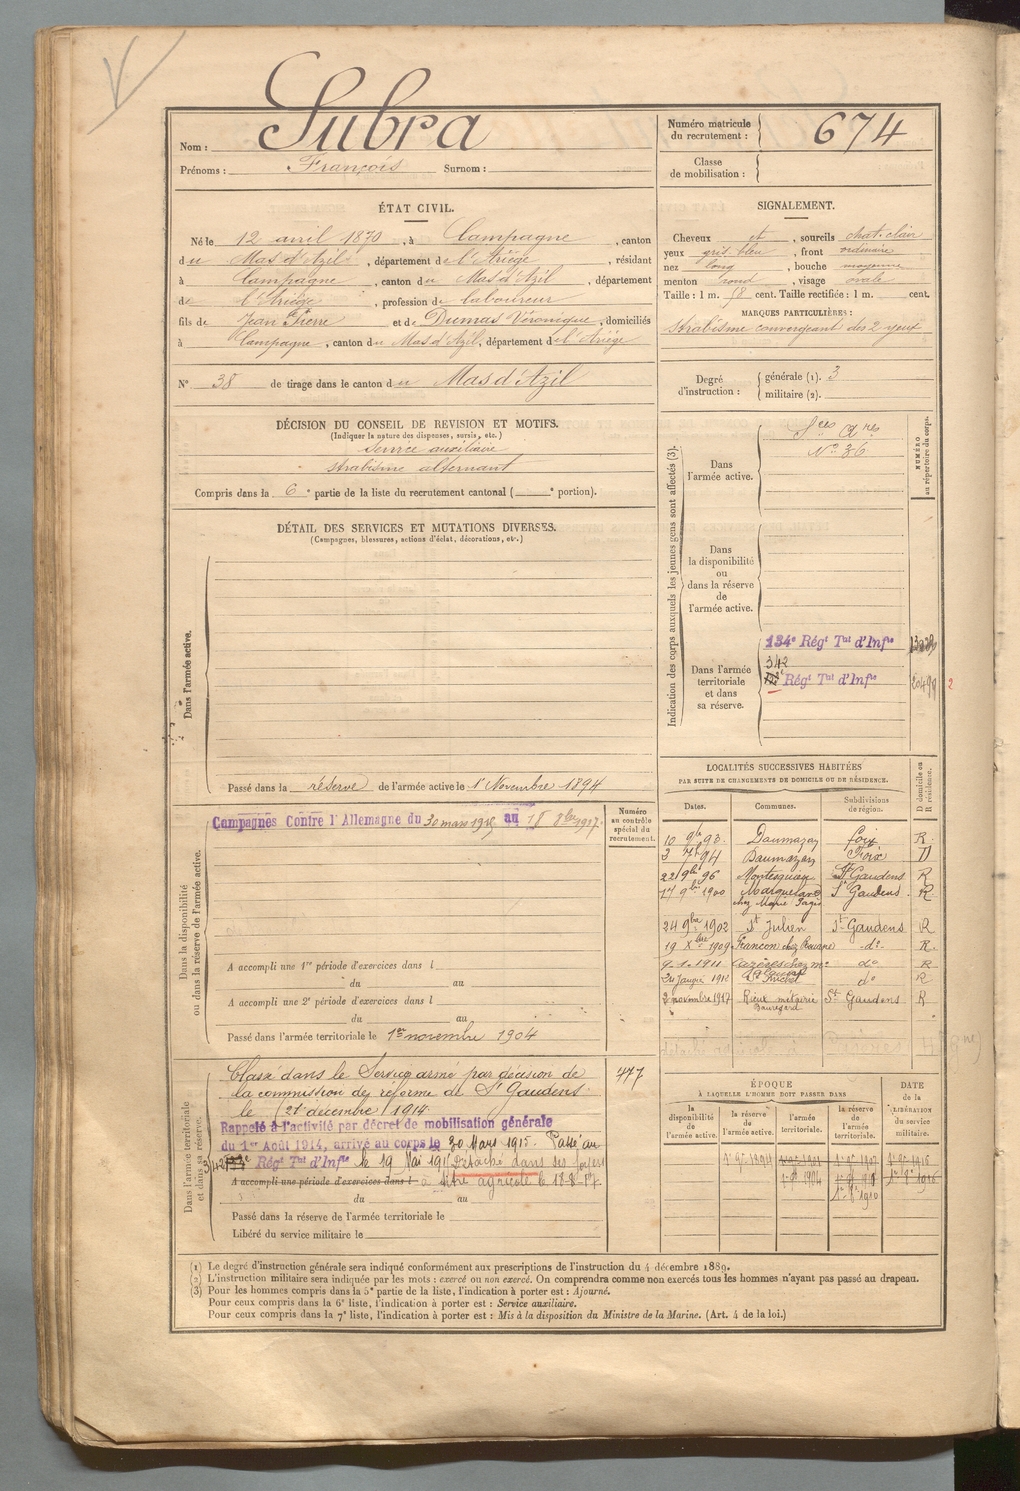 Nom : Subra
Prénoms : François Surnom :
Numéro matricule du recrutement : 674
Classe de mobilisation :
ÉTAT CIVIL.
Né le 12 avril 1870, à Campagne, canton
du Mas d'Azil, département de l'Ariège, résidant
à Campagne, canton du Mas d'Azil, département
de l'Ariège, profession de laboureur
fils de Jean Pierre et de Dumas Véronique, domiciliés
à Campagne, canton du Mas d'Azil, département de l'Ariège
N° 38 de tirage dans le canton du Mas d'Azil
SIGNALEMENT.
Cheveux et, sourcils chat. clair
yeux gris bleu, front ordinaire
nez long, bouche moyenne
menton rond, visage ovale
Taille : 1 m. 58 cent. Taille rectifiée : 1 m. cent.
MARQUES PARTICULIÈRES :
strabisme convergeant des 2 yeux
Degré d'instruction : générale (1). 3
militaire (2).
DÉCISION DU CONSEIL DE REVISION ET MOTIFS.
(Indiquer la nature des dispenses, sursis, etc.)
service auxiliaire
strabisme alternant
Compris dans la 6e partie de la liste du recrutement cantonal ( e portion).
DÉTAIL DES SERVICES ET MUTATIONS DIVERSES.
(Campagnes, blessures, actions d'éclat, décorations, etc.)
Dans l'armée active.
Passé dans la réserve de l'armée active le 1er Novembre 1894
Indication des corps auxquels les jeunes gens sont affectés (3).
NUMÉRO au répertoire du corps.
Dans l'armée active.
Sces Ares
N° 36
Dans la disponibilité ou dans la réserve de l'armée active.
Dans l'armée territoriale et dans sa réserve.
134e Régt Tal d'Infie
342
Régt Tal d'Infie
20499
2
LOCALITÉS SUCCESSIVES HABITÉES
PAR SUITE DE CHANGEMENTS DE DOMICILE OU DE RÉSIDENCE.
Dates. Communes. Subdivisions de région. D domicile ou R résidence.
10 9bre 93. Daumazan foix R.
3 7bre 94 Daumazan Foix D
22 9bre 96 Montesquieu St Gaudens R
17 9bre 1900 chez Marie Pagès St Gaudens R
24 9bre 1902 St Julien St Gaudens R
19 Xbre 1909 Francon chez do R.
9-1-1911 Cazères chez Mr do R
24 Janvier 1912 St Michel do R
2 novembre 1917 Rieux métairie Beauregard St Gaudens R
Dans la disponibilité ou dans la réserve de l'armée active.
Campagnes Contre l'Allemagne du 30 mars 1915 au 18 8bre 1917.
Numéro au contrôle spécial du recrutement.
A accompli une 1re période d'exercices dans l
du au
A accompli une 2e période d'exercices dans l
du au
Passé dans l'armée territoriale le 1er novembre 1904
Dans l'armée territoriale et dans sa réserve.
Classé dans le Service armé par décision de
la commission de réforme de St Gaudens
le (21 décembre 1914.
477
Rappelé à l'activité par décret de mobilisation générale
du 1er Août 1914, arrivé au corps le 30 Mars 1915. Passé au
342e Régt Tal d'Infie le 19 Mai 1915 Détaché dans ses foyers
A accompli une période d'exercices dans l à titre agricole le 18-8-17.
du au
Passé dans la réserve de l'armée territoriale le
Libéré du service militaire le
ÉPOQUE
À LAQUELLE L'HOMME DOIT PASSER DANS
DATE de la LIBÉRATION du service militaire.
la disponibilité de l'armée active. la réserve de l'armée active. l'armée territoriale. la réserve de l'armée territoriale.
1er 9bre 1894
1er 9bre 1904
1er 8bre 1910
(1) Le degré d'instruction générale sera indiqué conformément aux prescriptions de l'instruction du 4 décembre 1889.
(2) L'instruction militaire sera indiquée par les mots : exercé ou non exercé. On comprendra comme non exercés tous les hommes n'ayant pas passé au drapeau.
(3) Pour les hommes compris dans la 5e partie de la liste, l'indication à porter est : Ajourné.
Pour ceux compris dans la 6e liste, l'indication à porter est : Service auxiliaire.
Pour ceux compris dans la 7e liste, l'indication à porter est : Mis à la disposition du Ministre de la Marine. (Art. 4 de la loi.)